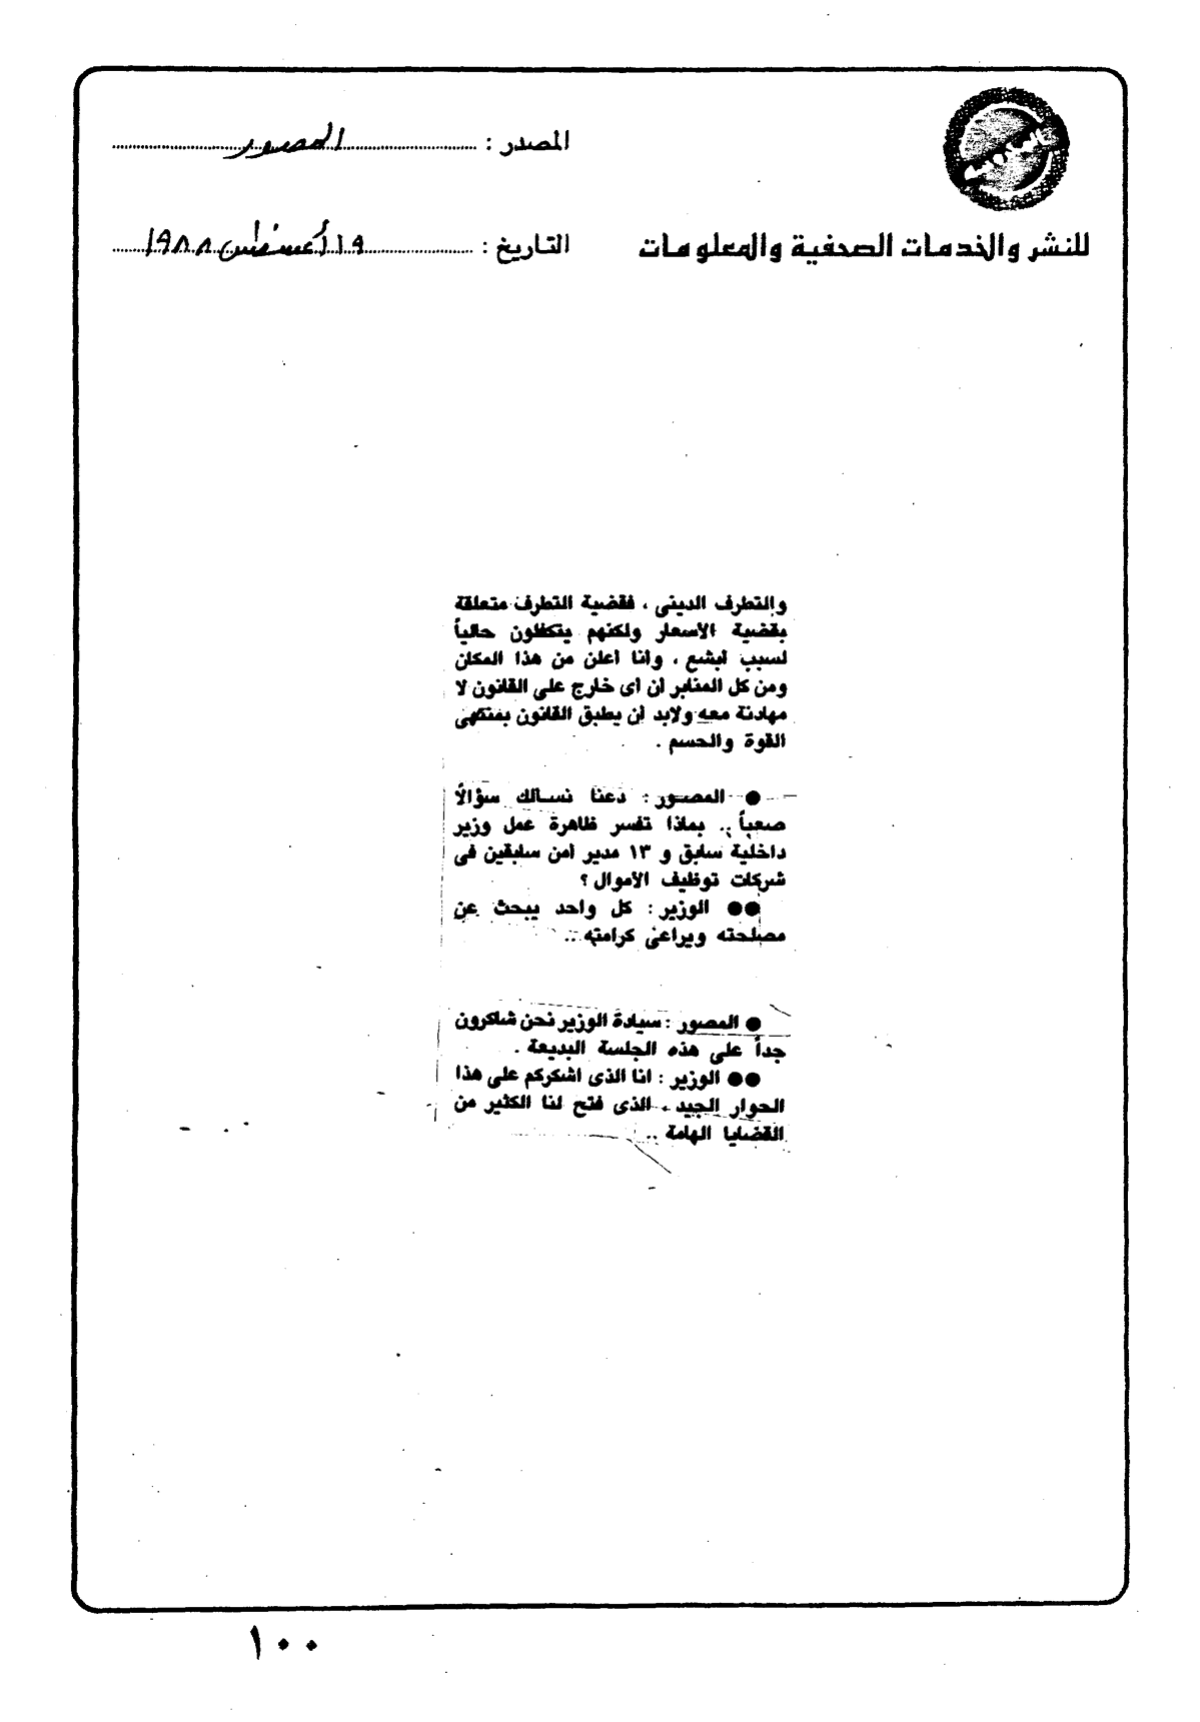 المصدر : المصور
للنشر والخدمات الصحفية والمعلومات
التاريخ : ١٩ أغسطس ١٩٨٨
والتطرف الدينى ، فقضية التطرف متعلقة
بقضية الأسعار ولكنهم يتكتلون حالياً
لسبب أبشع ، وأنا أعلن من هذا المكان
ومن كل المنابر أن أى خارج على القانون لا
مهادنة معه ولابد أن يطبق القانون بمنتهى
القوة والحسم .
● المصور : دعنا نسالك سؤالًا
صعباً .. بماذا تفسر ظاهرة عمل وزير
داخلية سابق و ١٣ مدير أمن سابقين فى
شركات توظيف الأموال ؟
●● الوزير : كل واحد يبحث عن
مصلحته ويراعى كرامته ..
● المصور : سيادة الوزير نحن شاكرون
جداً على هذه الجلسة البديعة .
●● الوزير : انا الذى اشكركم على هذا
الحوار الجيد ، الذى فتح لنا الكثير من
القضايا الهامة ..
١٠٠